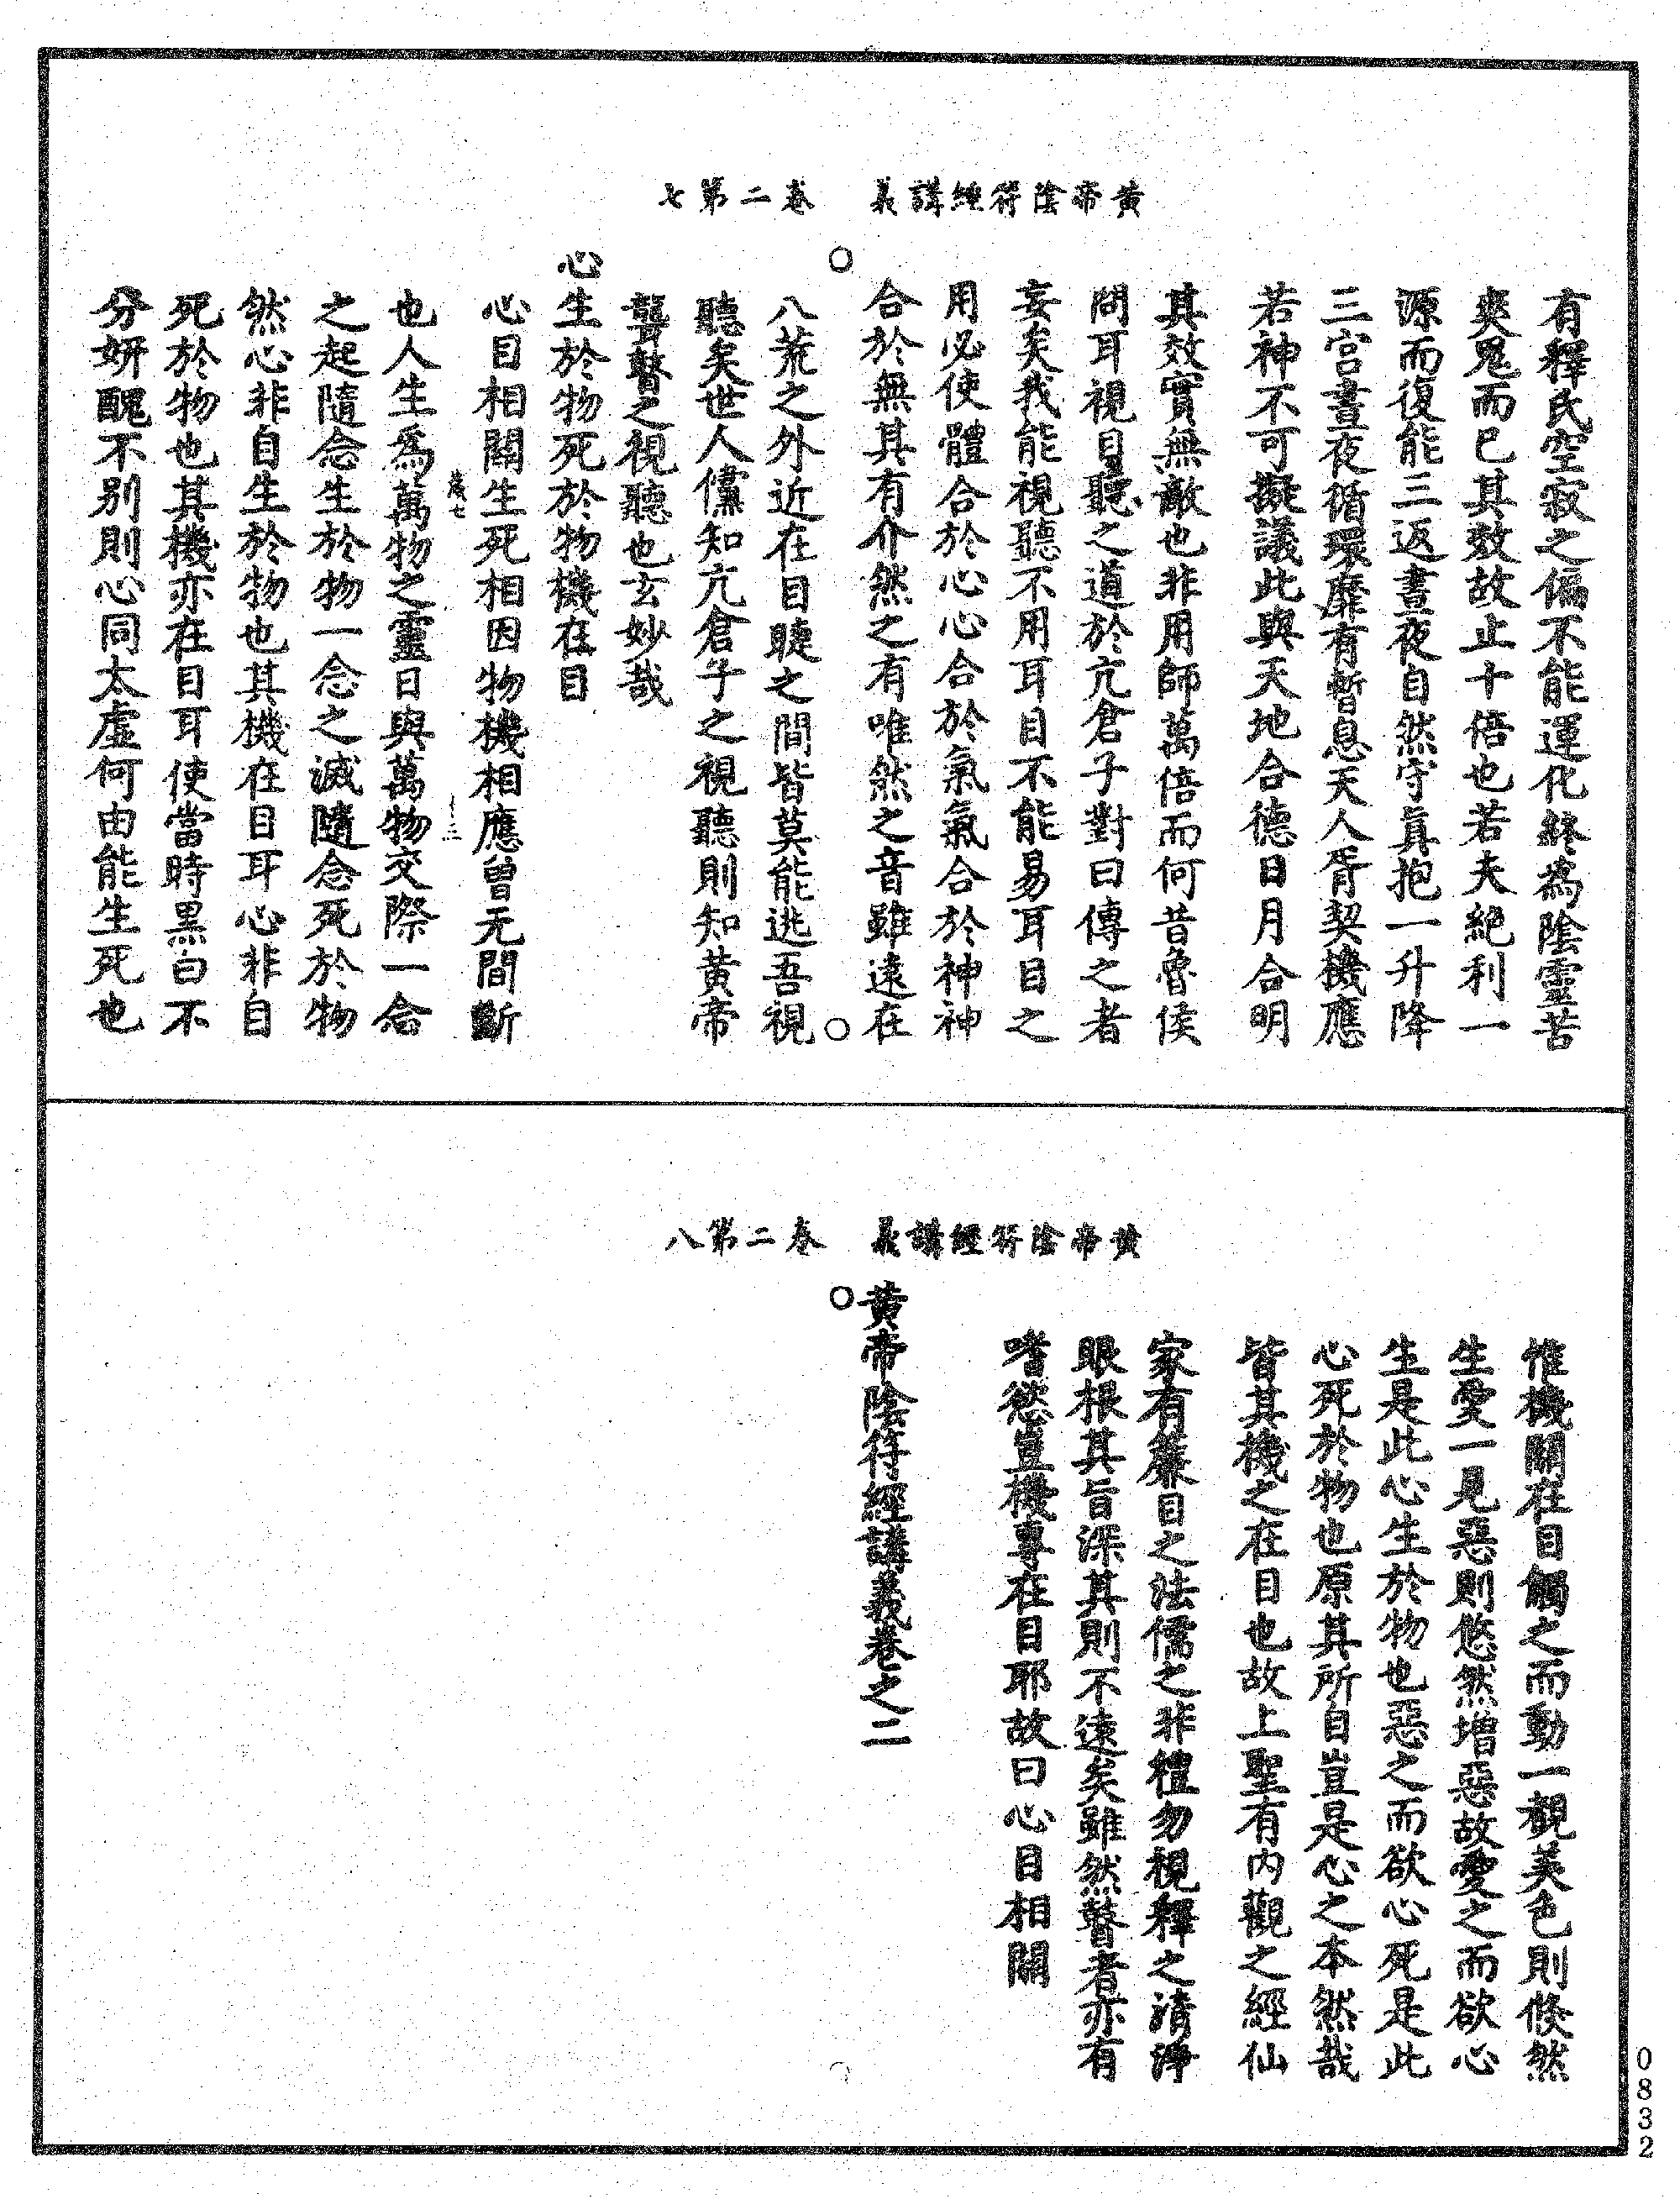 黃帝陰符經講義　卷二第七
有釋氏空寂之偏不能運化終為陰靈苦
爽鬼而已其效故止十倍也若夫絕利一
源而復能三返晝夜自然守真抱一升降
三宮晝夜循環靡有暫息天人胥契機應
若神不可擬議此與天地合德日月合明
其效實無敵也非用師萬倍而何昔魯侯
問耳視目聽之道於亢倉子對曰傳之者
妄矣我能視聽不用耳目不能易耳目之
用必使體合於心心合於氣氣合於神神
合於無其有介然之有唯然之音雖遠在
八荒之外近在目睫之間皆莫能逃吾視
聽矣世人儻知亢倉子之視聽則知黃帝
聾瞽之視聽也玄妙哉
心生於物死於物機在目
心目相關生死相因物機相應曾无間斷
也人生為萬物之靈日與萬物交際一念
之起隨念生於物一念之滅隨念死於物
然心非自生於物也其機在目耳心非自
死於物也其機亦在目耳使當時黑白不
分妍醜不別則心同太虛何由能生死也
黃帝陰符經講義　卷二第八
惟機關在目觸之而動一覩美色則倏然
生愛一見惡則悠然增惡故愛之而欲心
生是此心生於物也惡之而欲心死是此
心死於物也原其所自豈是心之本然哉
皆其機之在目也故上聖有內觀之經仙
家有簾目之法儒之非禮勿視釋之清淨
眼根其旨深其則不遠矣雖然瞽者亦有
嗜慾豈機專在目耶故曰心目相關
黃帝陰符經講義卷之二
0832